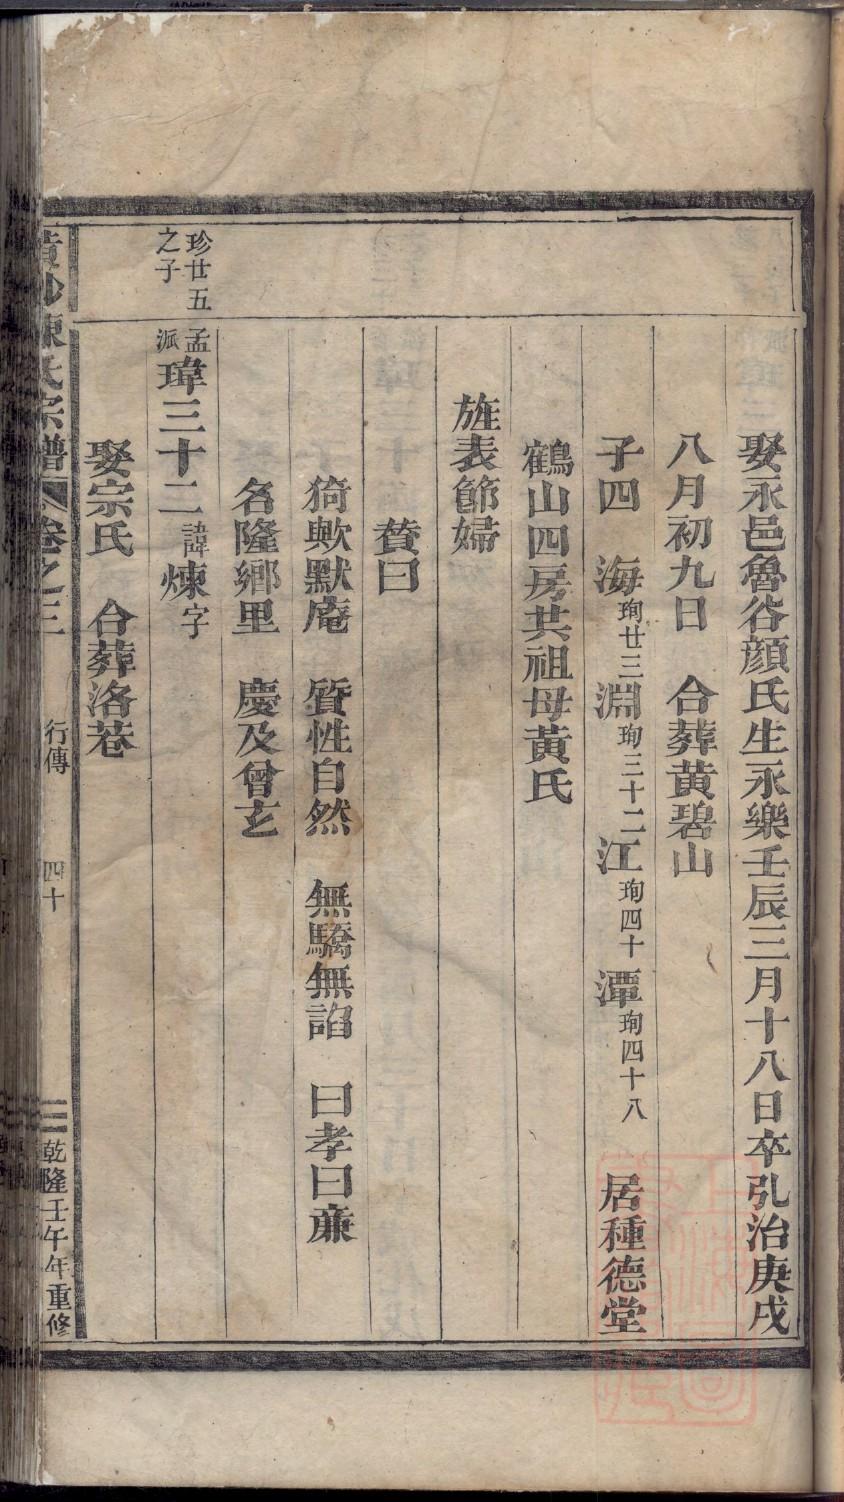 娶永邑魯谷顔氏生永樂壬辰三月十八日卒弘治庚戌
八月初九日　合葬黄碧山
子四　海珣廿三　淵珣三十二　江珣四十　潭珣四十八　居種德堂
鶴山四房共祖母黄氏
旌表節婦
贊曰
猗歟默庵　質性自然　無驕無謟　曰孝曰廉
名隆鄉里　慶及曾玄
珍廿五之子
孟派瑋三十二諱煉字
娶宗氏　合葬洛巷
陳氏宗譜　卷之三　行傳　四十　乾隆壬午年重修